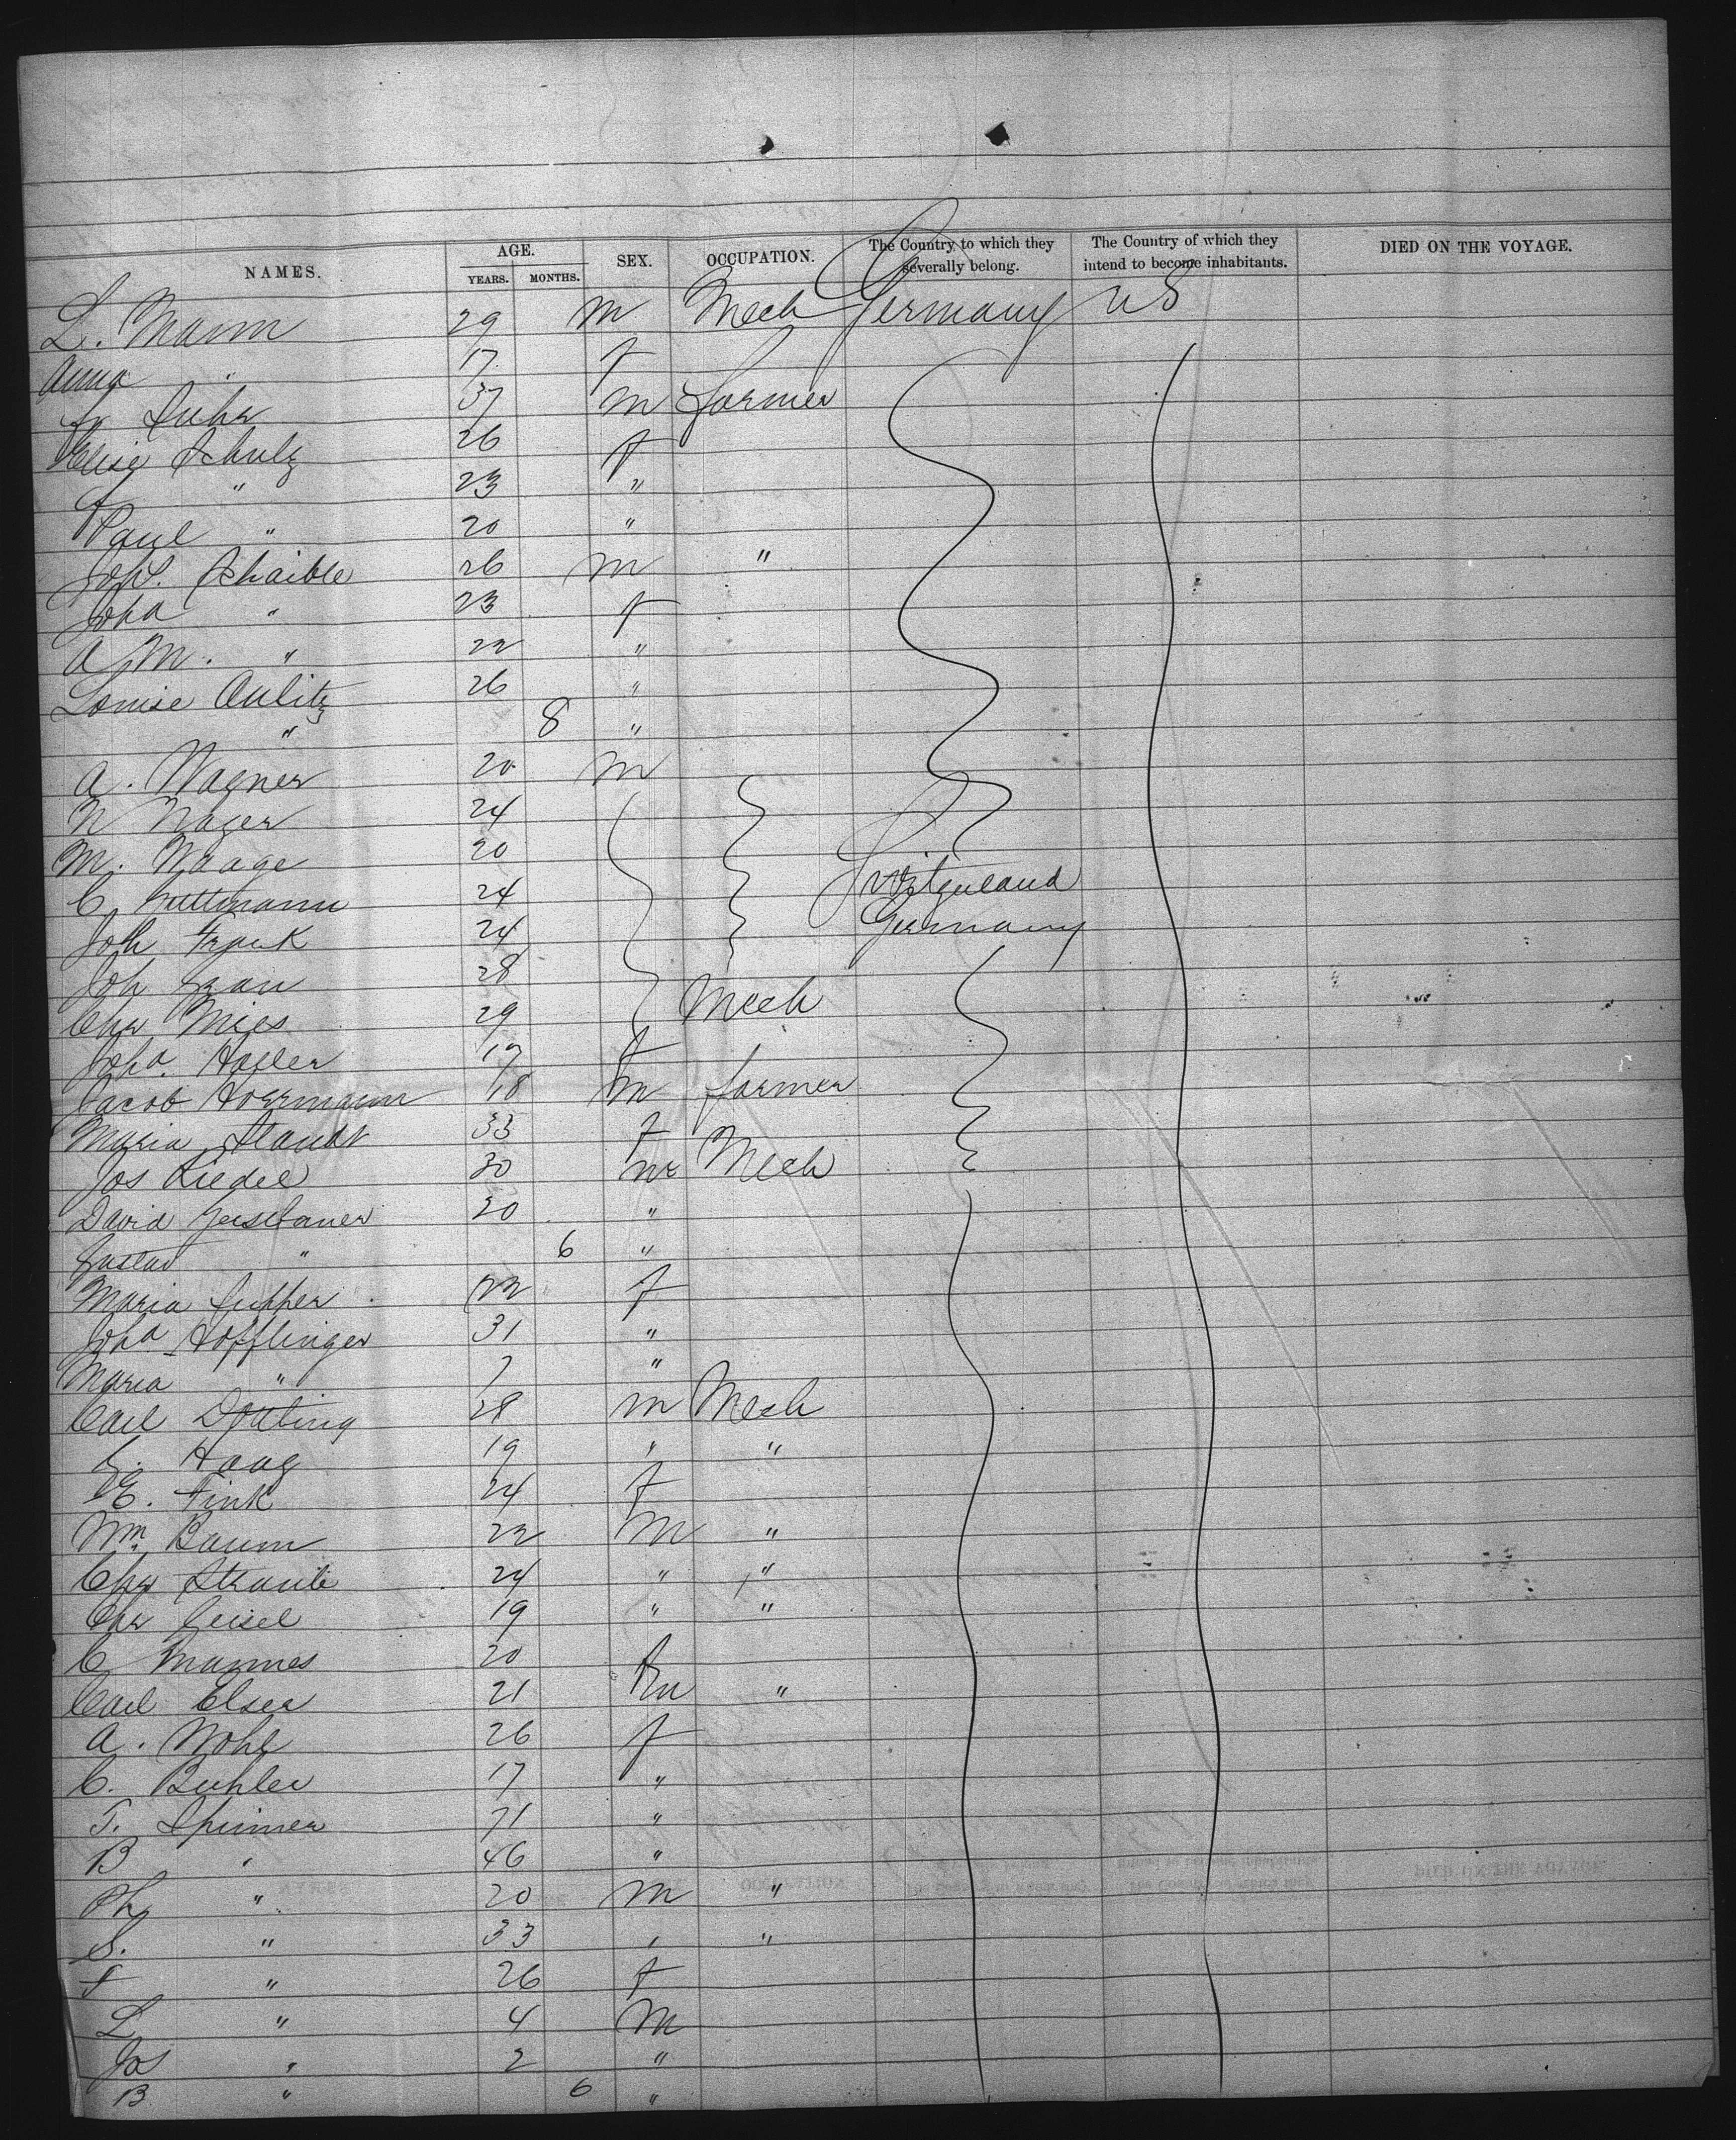 NAMES. AGE. YEARS. MONTHS. SEX. OCCUPATION. The Country to which they severally belong. The Country of which they intend to become inhabitants. DIED ON THE VOYAGE.
L. Mann 29 m Mech Germany US
Anna " 17 f
Fr 37 m farmer
Elise Schulz 26 f
F " 23 "
Paul " 20 "
Joh. Schaible 26 m "
Joha " 23 f
A M. " 22 "
Louise Aulitz 26 "
" 8 "
A. Wagner 20 m
N Nager 24
M. Waage 20
C Guttmann 24 Switzerland
Joh Frank 24 Germany
Joh 28
Chr Mies 29 Mech
Joha. Hafler 17 f
Jacob Hoermann 18 m farmer
Maria Staudt 33 f
Jos Riedel 30 m Mech
David 20 "
Gustav " 6 "
Maria 22 f
Joha Hofflinger 31 "
Maria " 7 "
Carl Dottling 28 m Mech
G. Haag 19 " "
E. Fink 24 f
Wm. Baum 22 m "
Chr Straube 24 " "
Chr Geisel 19 " "
C Mannes 20 f
Carl Elser 21 m "
A. Wohl 26 f
C. Buhler 17 "
T. Spinner 71 "
B " 46 "
Ph " 20 m "
S. " 33 " "
F " 26 f
L " 4 m
Jos " 2 "
B " 6 "